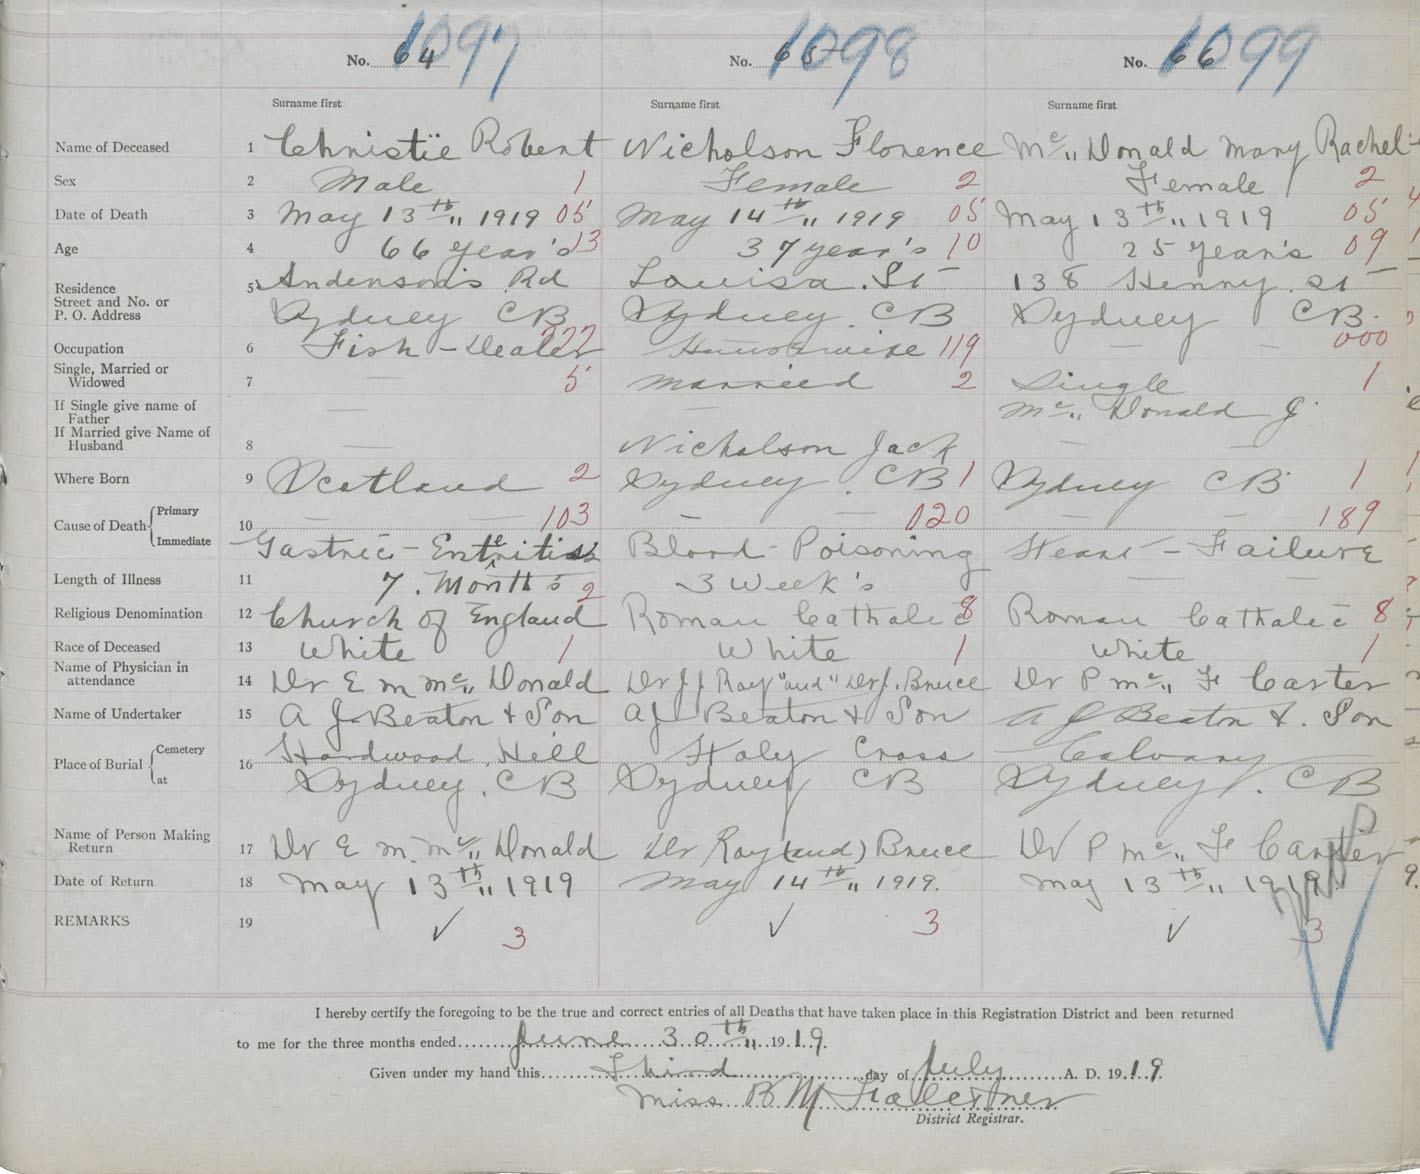 1097 1098 1099
No. 64 No. 65 No. 66
Surname first Surname first Surname first
Name of Deceased 1 Christie Robert Nicholson Florence Mc„ Donald Mary Rachel
Sex 2 Male 1 Female 2 Female 2
Date of Death 3 May 13th„ 1919 05 May 14th„ 1919 05 May 13th„ 1919 05
Age 4 66 year's 13 37 year's 10 25 year's 09
Residence 5 Anderson's Rd Louisa. St 138 Henry. St
Street and No. or
P. O. Address Sydney CB Sydney. CB Sydney CB.
Occupation 6 Fish-Dealer 222 Housewife 119 — — 000
Single, Married or
Widowed 7 — 5 Married 2 Single 1
If Single give name of
Father — — Mc„ Donald J.
If Married give Name of
Husband 8 — Nicholson Jack — —
Where Born 9 Scotland 2 Sydney. CB 1 Sydney CB 1
Cause of Death Primary 10 — — 103 — — 020 — — 189
Immediate Gastric-Enteritis Blood-Poisoning Heart-Failure
Length of Illness 11 7. Month's 3 Week's — —
Religious Denomination 12 Church of England 2 Roman Catholic 8 Roman Catholic 8
Race of Deceased 13 White 1 White 1 White 1
Name of Physician in
attendance 14 Dr E M Mc„ Donald Dr J J Roy "and" Dr J. Bruce Dr P Mc„ F Carter
Name of Undertaker 15 A J Beaton + Son AJ Beaton + Son A J Beaton +. Son
Place of Burial Cemetery 16 Hardwood Hill Holy Cross Calvary
at Sydney. CB Sydney CB Sydney. CB
Name of Person Making
Return 17 Dr E M. Mc„ Donald Dr Roy (and) Bruce Dr P Mc„ F Carter
Date of Return 18 May 13th„ 1919 May 14th„ 1919. May 13th„ 1919
REMARKS 19 ✓ 3 ✓ 3 ✓ 3
I hereby certify the foregoing to be the true and correct entries of all Deaths that have taken place in this Registration District and been returned
to me for the three months ended June 30th„ 1919.
Given under my hand this Third day of July A. D. 1919.
Miss B M
District Registrar.